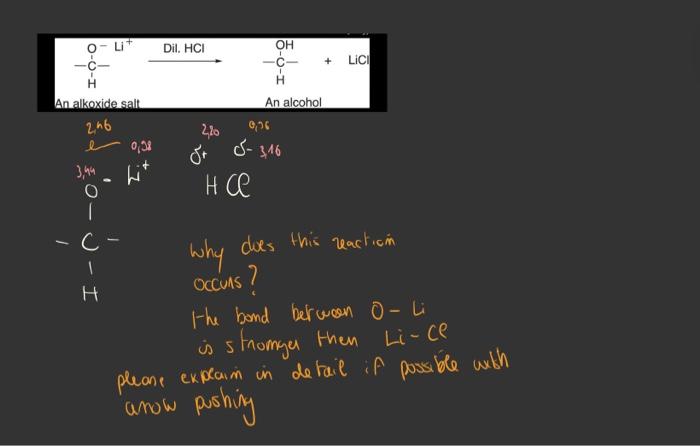 O⁻ Li⁺ Dil. HCl OH
—C— —C— + LiCl
H H
An alkoxide salt An alcohol
2,46 2,20 0,96
e 0,98 δ+ δ- 3,16
3,44 O - Li⁺ H Cl
- C -
H
Why does this reaction
occurs?
the bond between O - Li
is stronger then Li - Cl
please explain in detail if possible with
arrow pushing